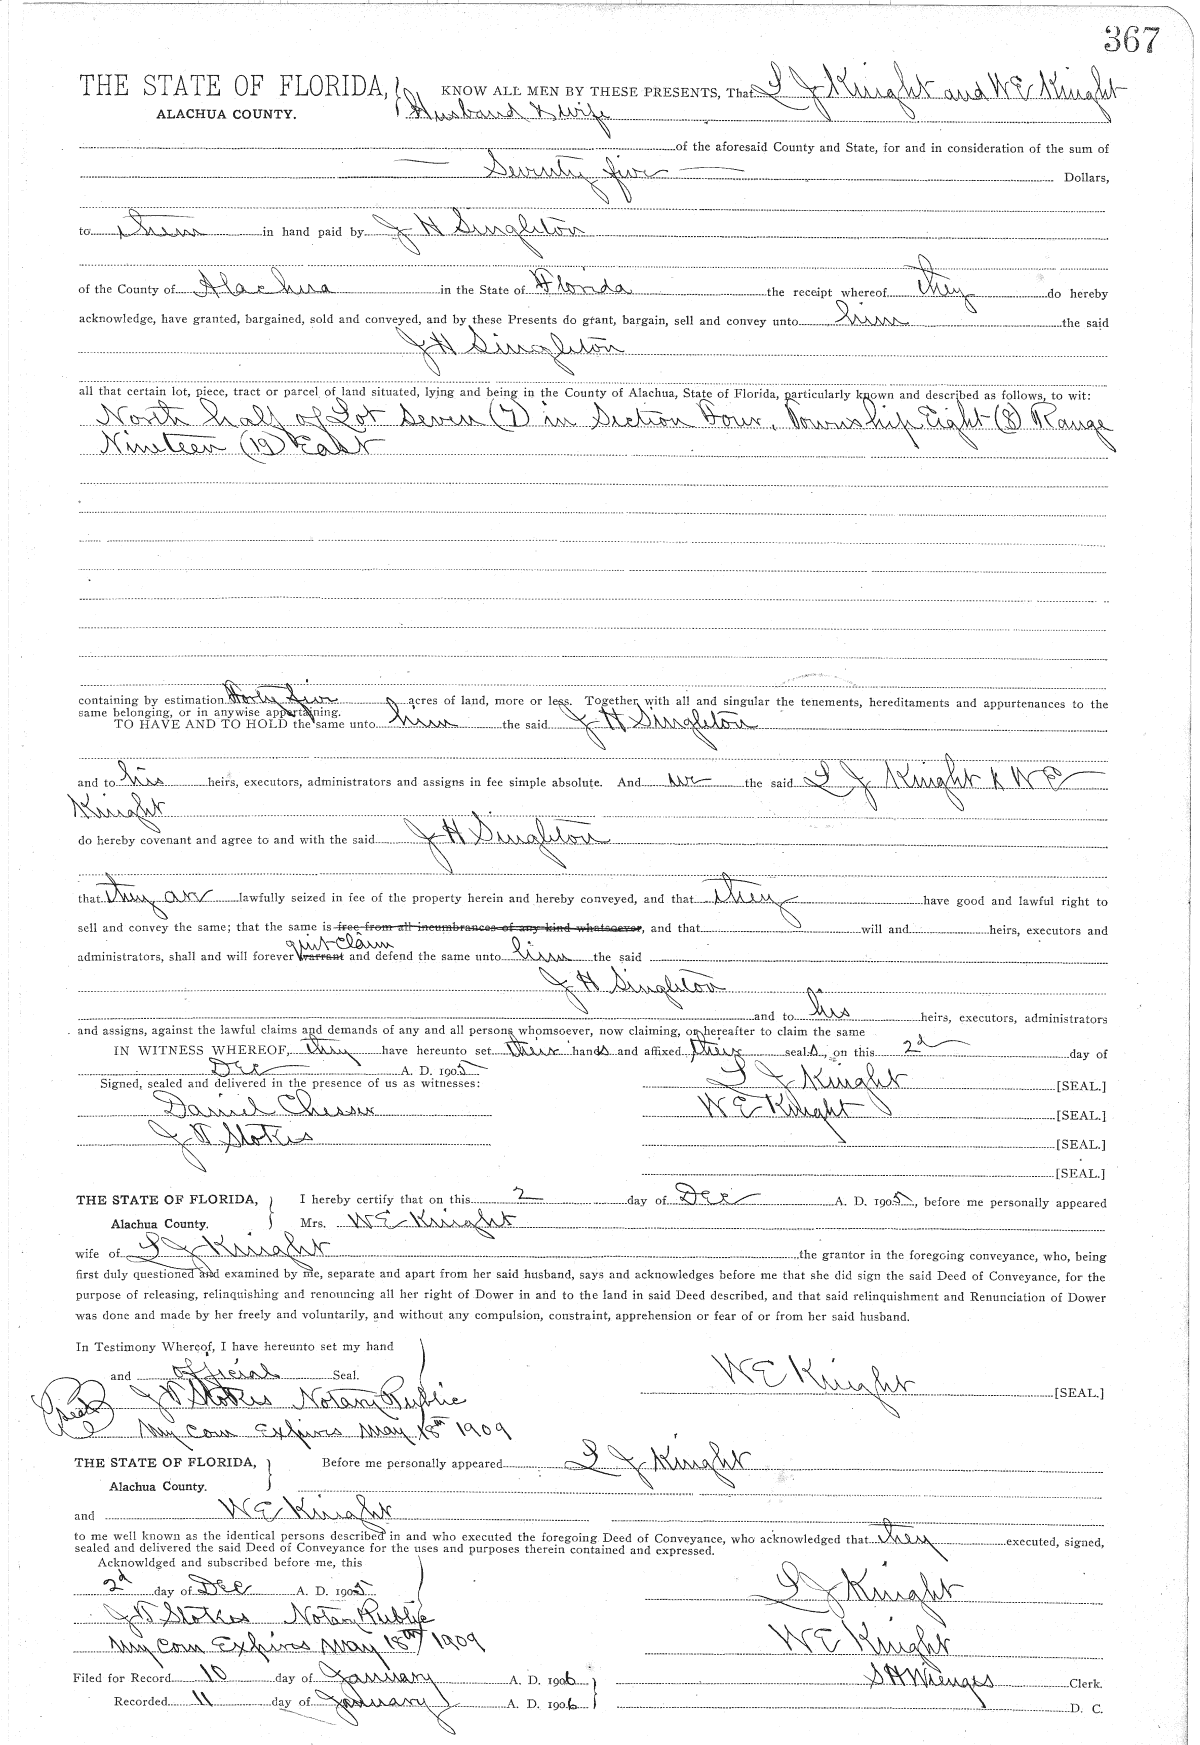 367
THE STATE OF FLORIDA, KNOW ALL MEN BY THESE PRESENTS, That L J Knight and W E Knight
ALACHUA COUNTY. Husband & wife
of the aforesaid County and State, for and in consideration of the sum of
Seventy five Dollars,
to them in hand paid by J H Singleton
of the County of Alachua in the State of Florida the receipt whereof they do hereby
acknowledge, have granted, bargained, sold and conveyed, and by these Presents do grant, bargain, sell and convey unto him the said
J H Singleton
all that certain lot, piece, tract or parcel of land situated, lying and being in the County of Alachua, State of Florida, particularly known and described as follows, to wit:
North half of Lot Seven (7) in Section Four, Township Eight (8) Range
Nineteen (19) East
containing by estimation Forty five acres of land, more or less. Together with all and singular the tenements, hereditaments and appurtenances to the
same belonging, or in anywise appertaining.
TO HAVE AND TO HOLD the same unto him the said J H Singleton
and to his heirs, executors, administrators and assigns in fee simple absolute. And we the said L J Knight & W E
Knight
do hereby covenant and agree to and with the said J H Singleton
that they are lawfully seized in fee of the property herein and hereby conveyed, and that they have good and lawful right to
sell and convey the same; that the same is free from all incumbrances of any kind whatsoever, and that will and heirs, executors and
quit claim
administrators, shall and will forever warrant and defend the same unto him the said
J H Singleton
and to his heirs, executors, administrators
and assigns, against the lawful claims and demands of any and all persons whomsoever, now claiming, or hereafter to claim the same
IN WITNESS WHEREOF, they have hereunto set their hands and affixed their seals, on this 2d day of
Dec A. D. 1905
Signed, sealed and delivered in the presence of us as witnesses: L J Knight [SEAL.]
Daniel Chesser W E Knight [SEAL.]
J W Stokes [SEAL.]
[SEAL.]
THE STATE OF FLORIDA, I hereby certify that on this 2 day of Dec A. D. 1905, before me personally appeared
Alachua County. Mrs. W E Knight
wife of L J Knight the grantor in the foregoing conveyance, who, being
first duly questioned and examined by me, separate and apart from her said husband, says and acknowledges before me that she did sign the said Deed of Conveyance, for the
purpose of releasing, relinquishing and renouncing all her right of Dower in and to the land in said Deed described, and that said relinquishment and Renunciation of Dower
was done and made by her freely and voluntarily, and without any compulsion, constraint, apprehension or fear of or from her said husband.
In Testimony Whereof, I have hereunto set my hand
and official Seal. W E Knight [SEAL.]
Seal J W Stokes Notary Public
My Com Expires May 18th 1909
THE STATE OF FLORIDA, Before me personally appeared L J Knight
Alachua County.
and W E Knight
to me well known as the identical persons described in and who executed the foregoing Deed of Conveyance, who acknowledged that they executed, signed,
sealed and delivered the said Deed of Conveyance for the uses and purposes therein contained and expressed.
Acknowldged and subscribed before me, this
2d day of Dec A. D. 1905 L J Knight
J W Stokes Notary Public
My Com Expires May 18th 1909 W E Knight
Filed for Record 10 day of January A. D. 1906 S H Wienges Clerk.
Recorded 11 day of January A. D. 1906 D. C.